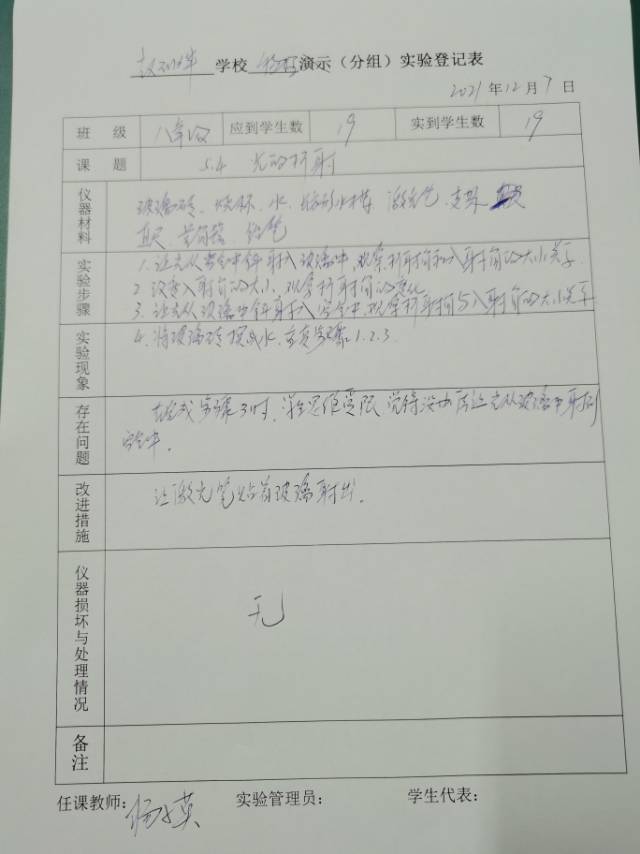 学校 演示（分组）实验登记表
2021 年 12 月 7 日
班 级 八年级 应到学生数 19 实到学生数 19
课 题 5.4 光的折射
仪器材料
玻璃砖、烧杯、水、 水槽 激光笔、支架
直尺、量角器、铅笔
实验步骤
1. 让光从空气中斜射入玻璃中，观察折射角和入射角的大小关系
2. 改变入射角的大小，观察折射角的变化
3. 让光从玻璃中斜射入空气中，观察折射角与入射角的大小关系
实验现象
4. 将玻璃砖换成水，重复步骤1.2.3.
存在问题
在完成步骤3时，学生思维受限，觉得没办法让光从玻璃中射到
空气中.
改进措施
让激光笔 着玻璃射出.
仪器损坏与处理情况
无
备注
任课教师： 杨 英 实验管理员： 学生代表：